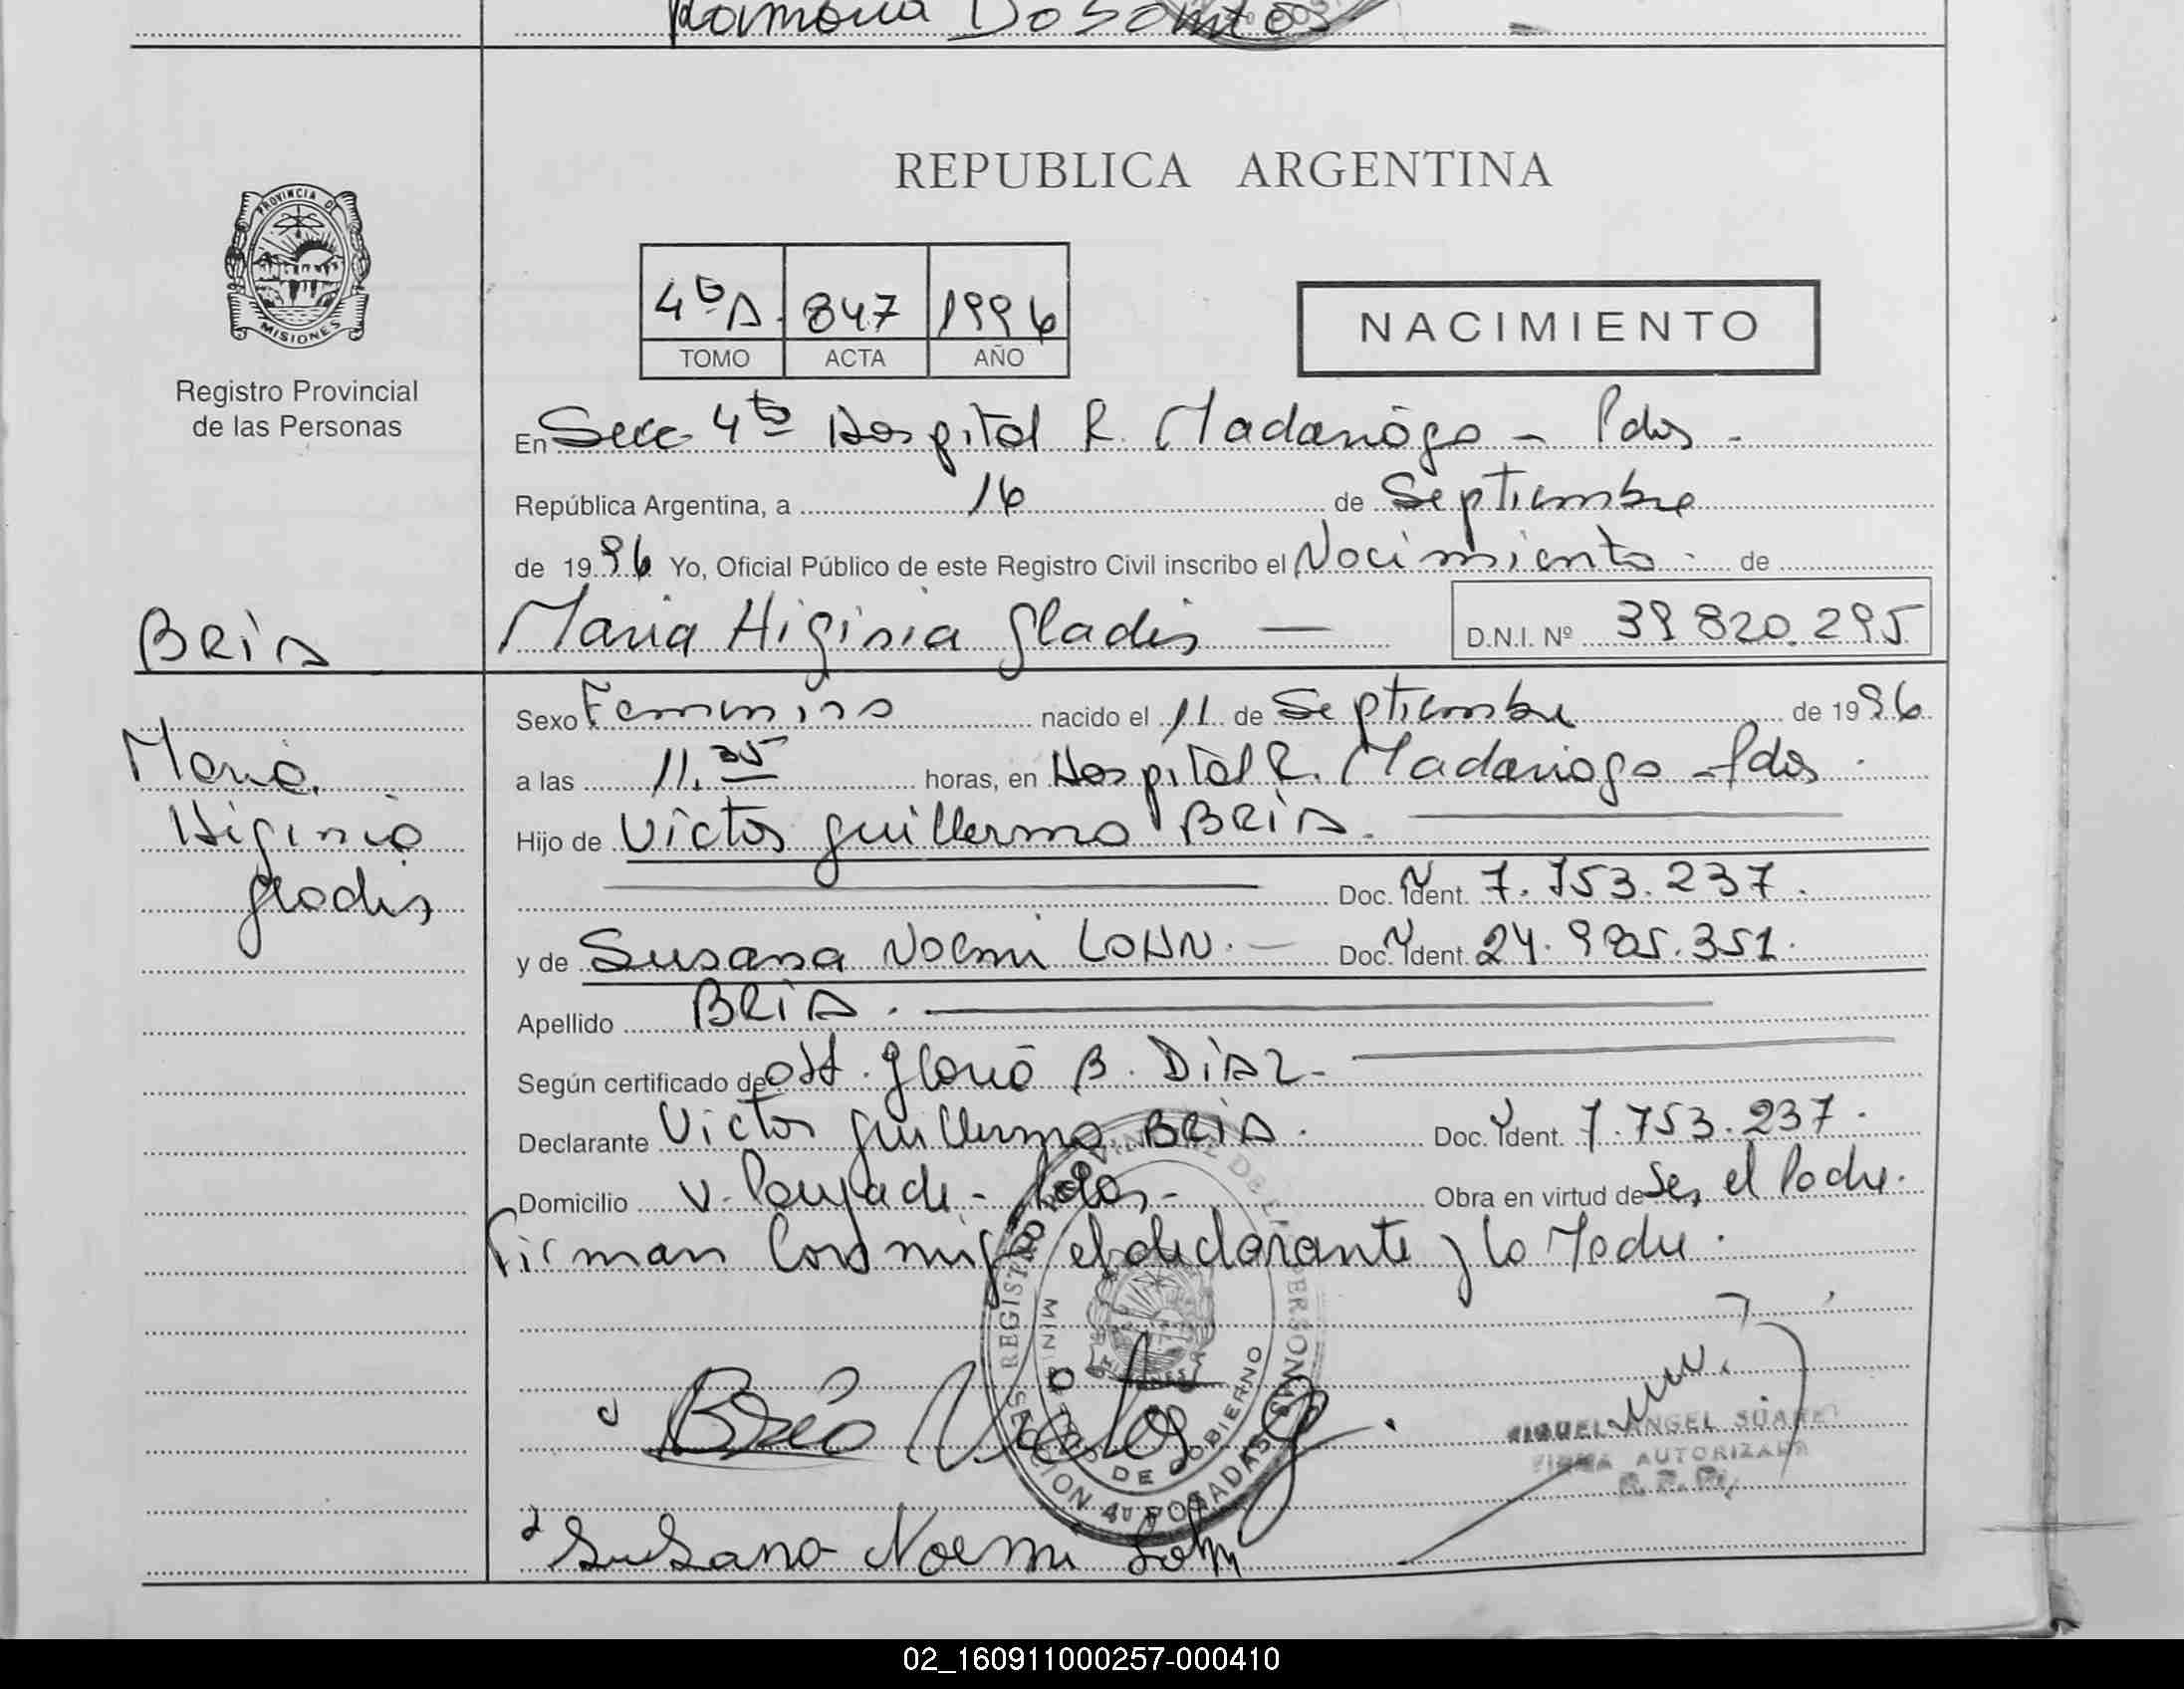 Ramona Dosantos
REPUBLICA ARGENTINA
PROVINCIA DE
MISIONES
Registro Provincial
de las Personas
4ta A. 847 1996
TOMO ACTA AÑO
NACIMIENTO
En Secc 4ta Hospital R. Madariaga - Pdas -
República Argentina, a 16 de Septiembre
de 1996 Yo, Oficial Público de este Registro Civil inscribo el Nacimiento - de
BRIA
Maria Higinia Gladis — D.N.I. Nº 39 820.295
Maria
Higinia
Gladis
Sexo Femenino nacido el 11 de Septiembre de 1996
a las 11.35 horas, en Hospital R. Madariaga - Pdas -
Hijo de Victor Guillermo BRIA.
Doc. Ident. 7.753.237.
y de Susana Noemi LOHN. — Doc. Ident. 24.985.351.
Apellido BRIA.
Según certificado de Obst. Gloria B. DIAZ -
Declarante Victor Guillermo BRIA. Doc. Ident. 7.753.237.
Domicilio V. Poujade - Pdas - Obra en virtud de Ser el Padre.
Firman conmigo el declarante y la Madre.
Bria Victor G.
MIGUEL ANGEL SUAREZ
FIRMA AUTORIZADA
R. P. P.
Susana Noemi Lohn
REGISTRO PROVINCIAL DE LAS PERSONAS
MINISTERIO DE GOBIERNO
SECCION 4ta POSADAS
02_160911000257-000410